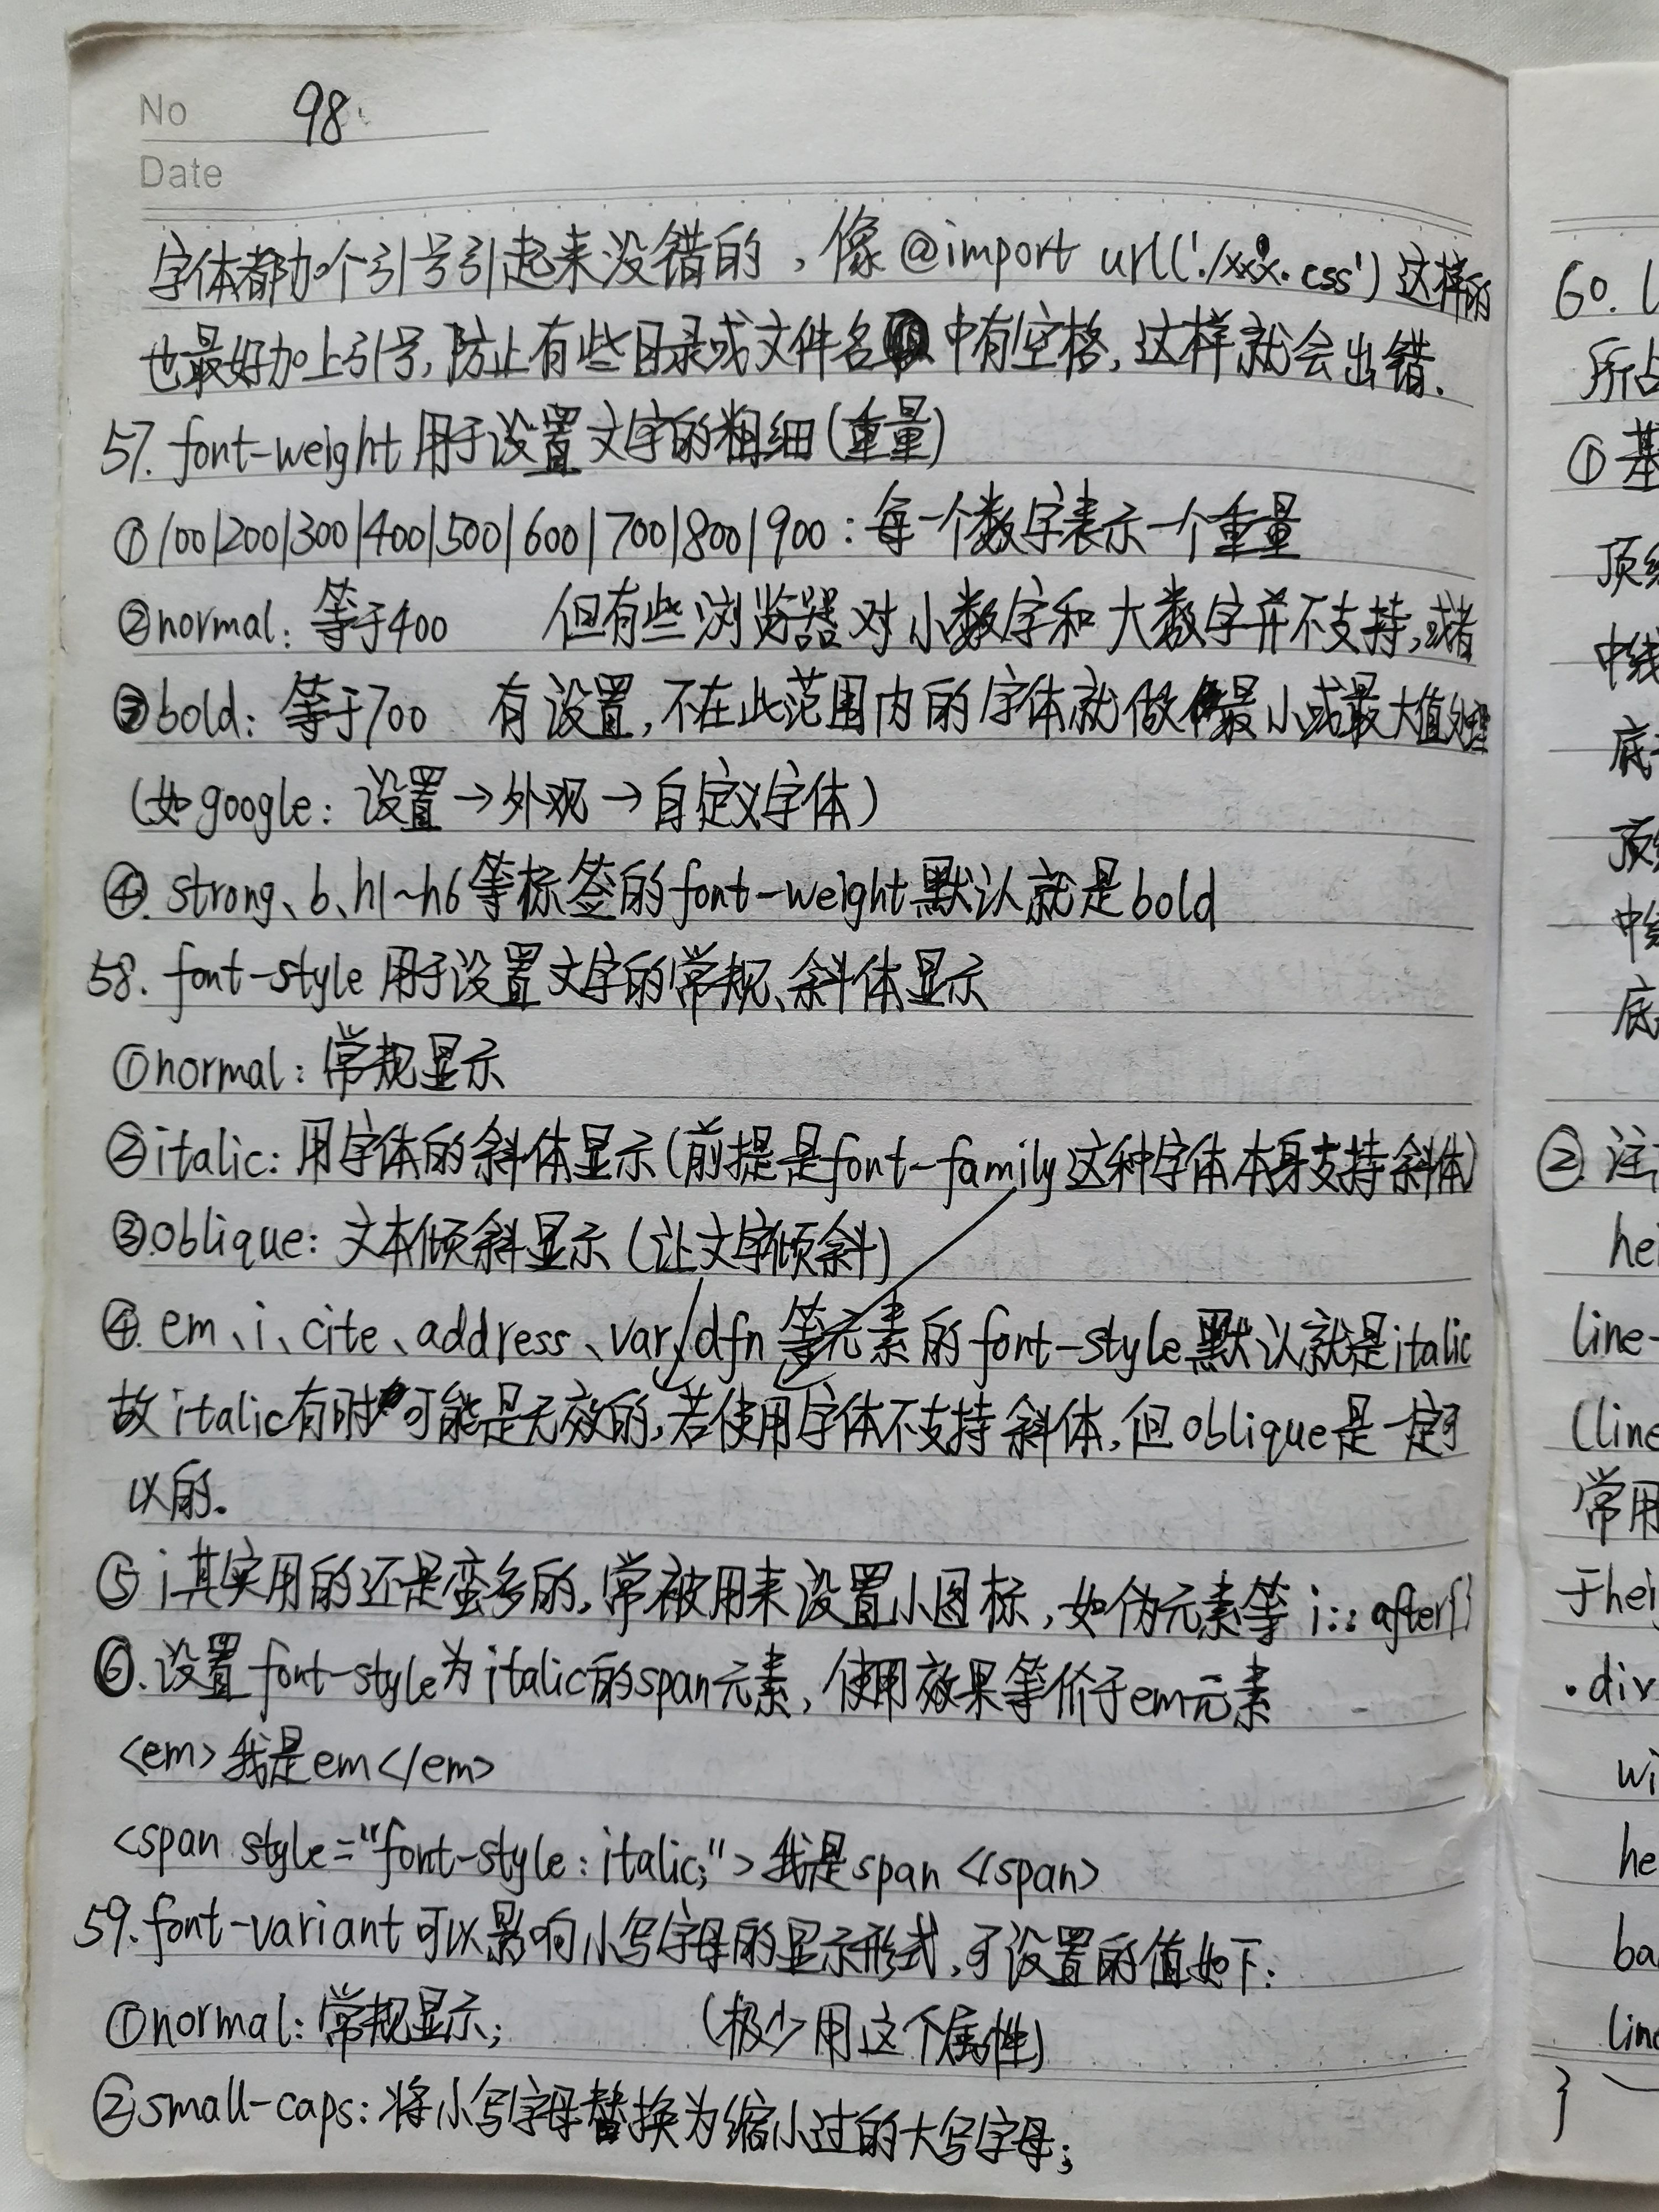 No 98
Date
字体都加个引号引起来没错的，像@import url('./xxx.css')这样的
也最好加上引号,防止有些目录或文件名中有空格,这样就会出错.
57. font-weight用于设置文字的粗细(重量)
①100|200|300|400|500|600|700|800|900:每一个数字表示一个重量
②normal:等于400 但有些浏览器对小数字和大数字并不支持,或者
③bold:等于700 有设置,不在此范围内的字体就做最小或最大值处理
(如google:设置→外观→自定义字体)
④.strong、b、h1~h6等标签的font-weight默认就是bold
58. font-style用于设置文字的常规、斜体显示
①normal:常规显示
②italic:用字体的斜体显示(前提是font-family这种字体本身支持斜体)
③oblique:文本倾斜显示(让文字倾斜)
④.em、i、cite、address、var、dfn等元素的font-style默认就是italic
故italic有时可能是无效的,若使用字体不支持斜体,但oblique是一定可
以的。
⑤i其实用的还是蛮多的,常被用来设置小图标,如伪元素等i::after{}
⑥.设置font-style为italic的span元素,使用效果等价于em元素
<em>我是em</em>
<span style="font-style:italic;">我是span</span>
59.font-variant可以影响小写字母的显示形式,可设置的值如下:
①normal:常规显示; (极少用这个属性)
②small-caps:将小写字母替换为缩小过的大写字母;
60.
所占
①基
顶线
中线
底
顶线
中线
底
②注
hei
line-
(line
常用
于hei
.div
wi
he
ba
line
}